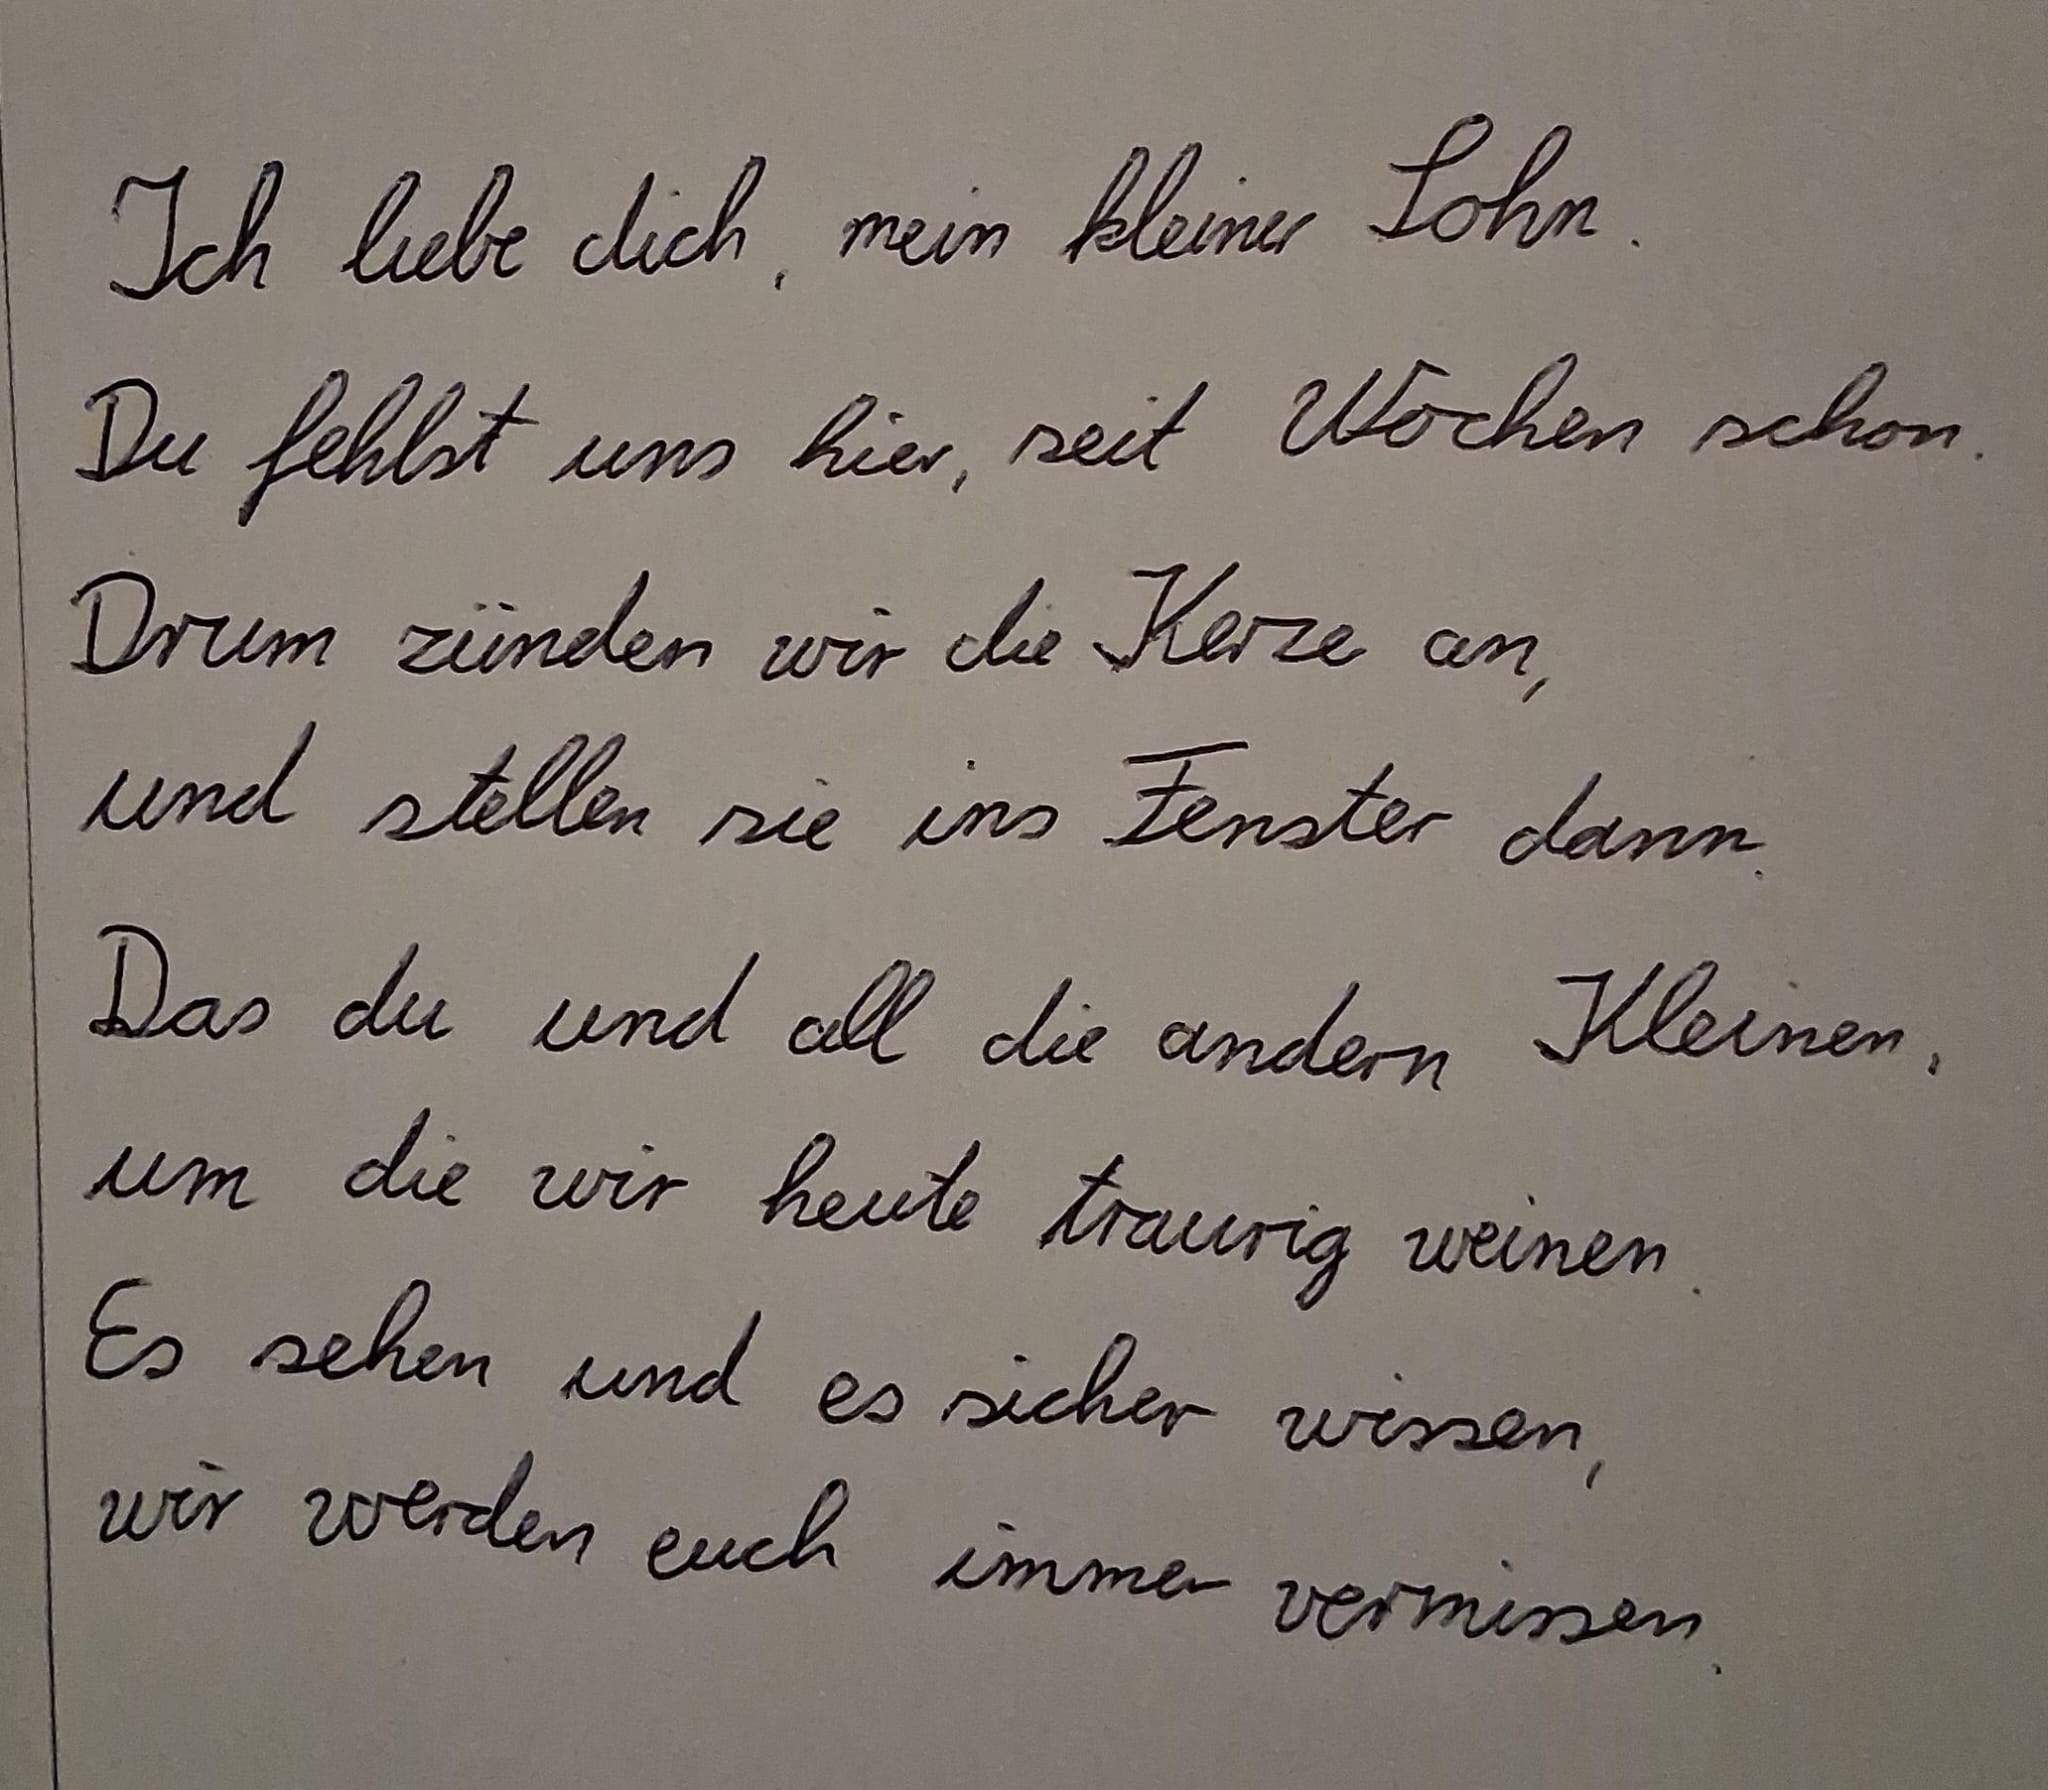 Ich liebe dich, mein kleiner Sohn.
Du fehlst uns hier, seit Wochen schon.
Drum zünden wir die Kerze an,
und stellen sie ins Fenster dann.
Das du und all die andern Kleinen,
um die wir heute traurig weinen.
Es sehen und es sicher wissen,
wir werden euch immer vermissen.